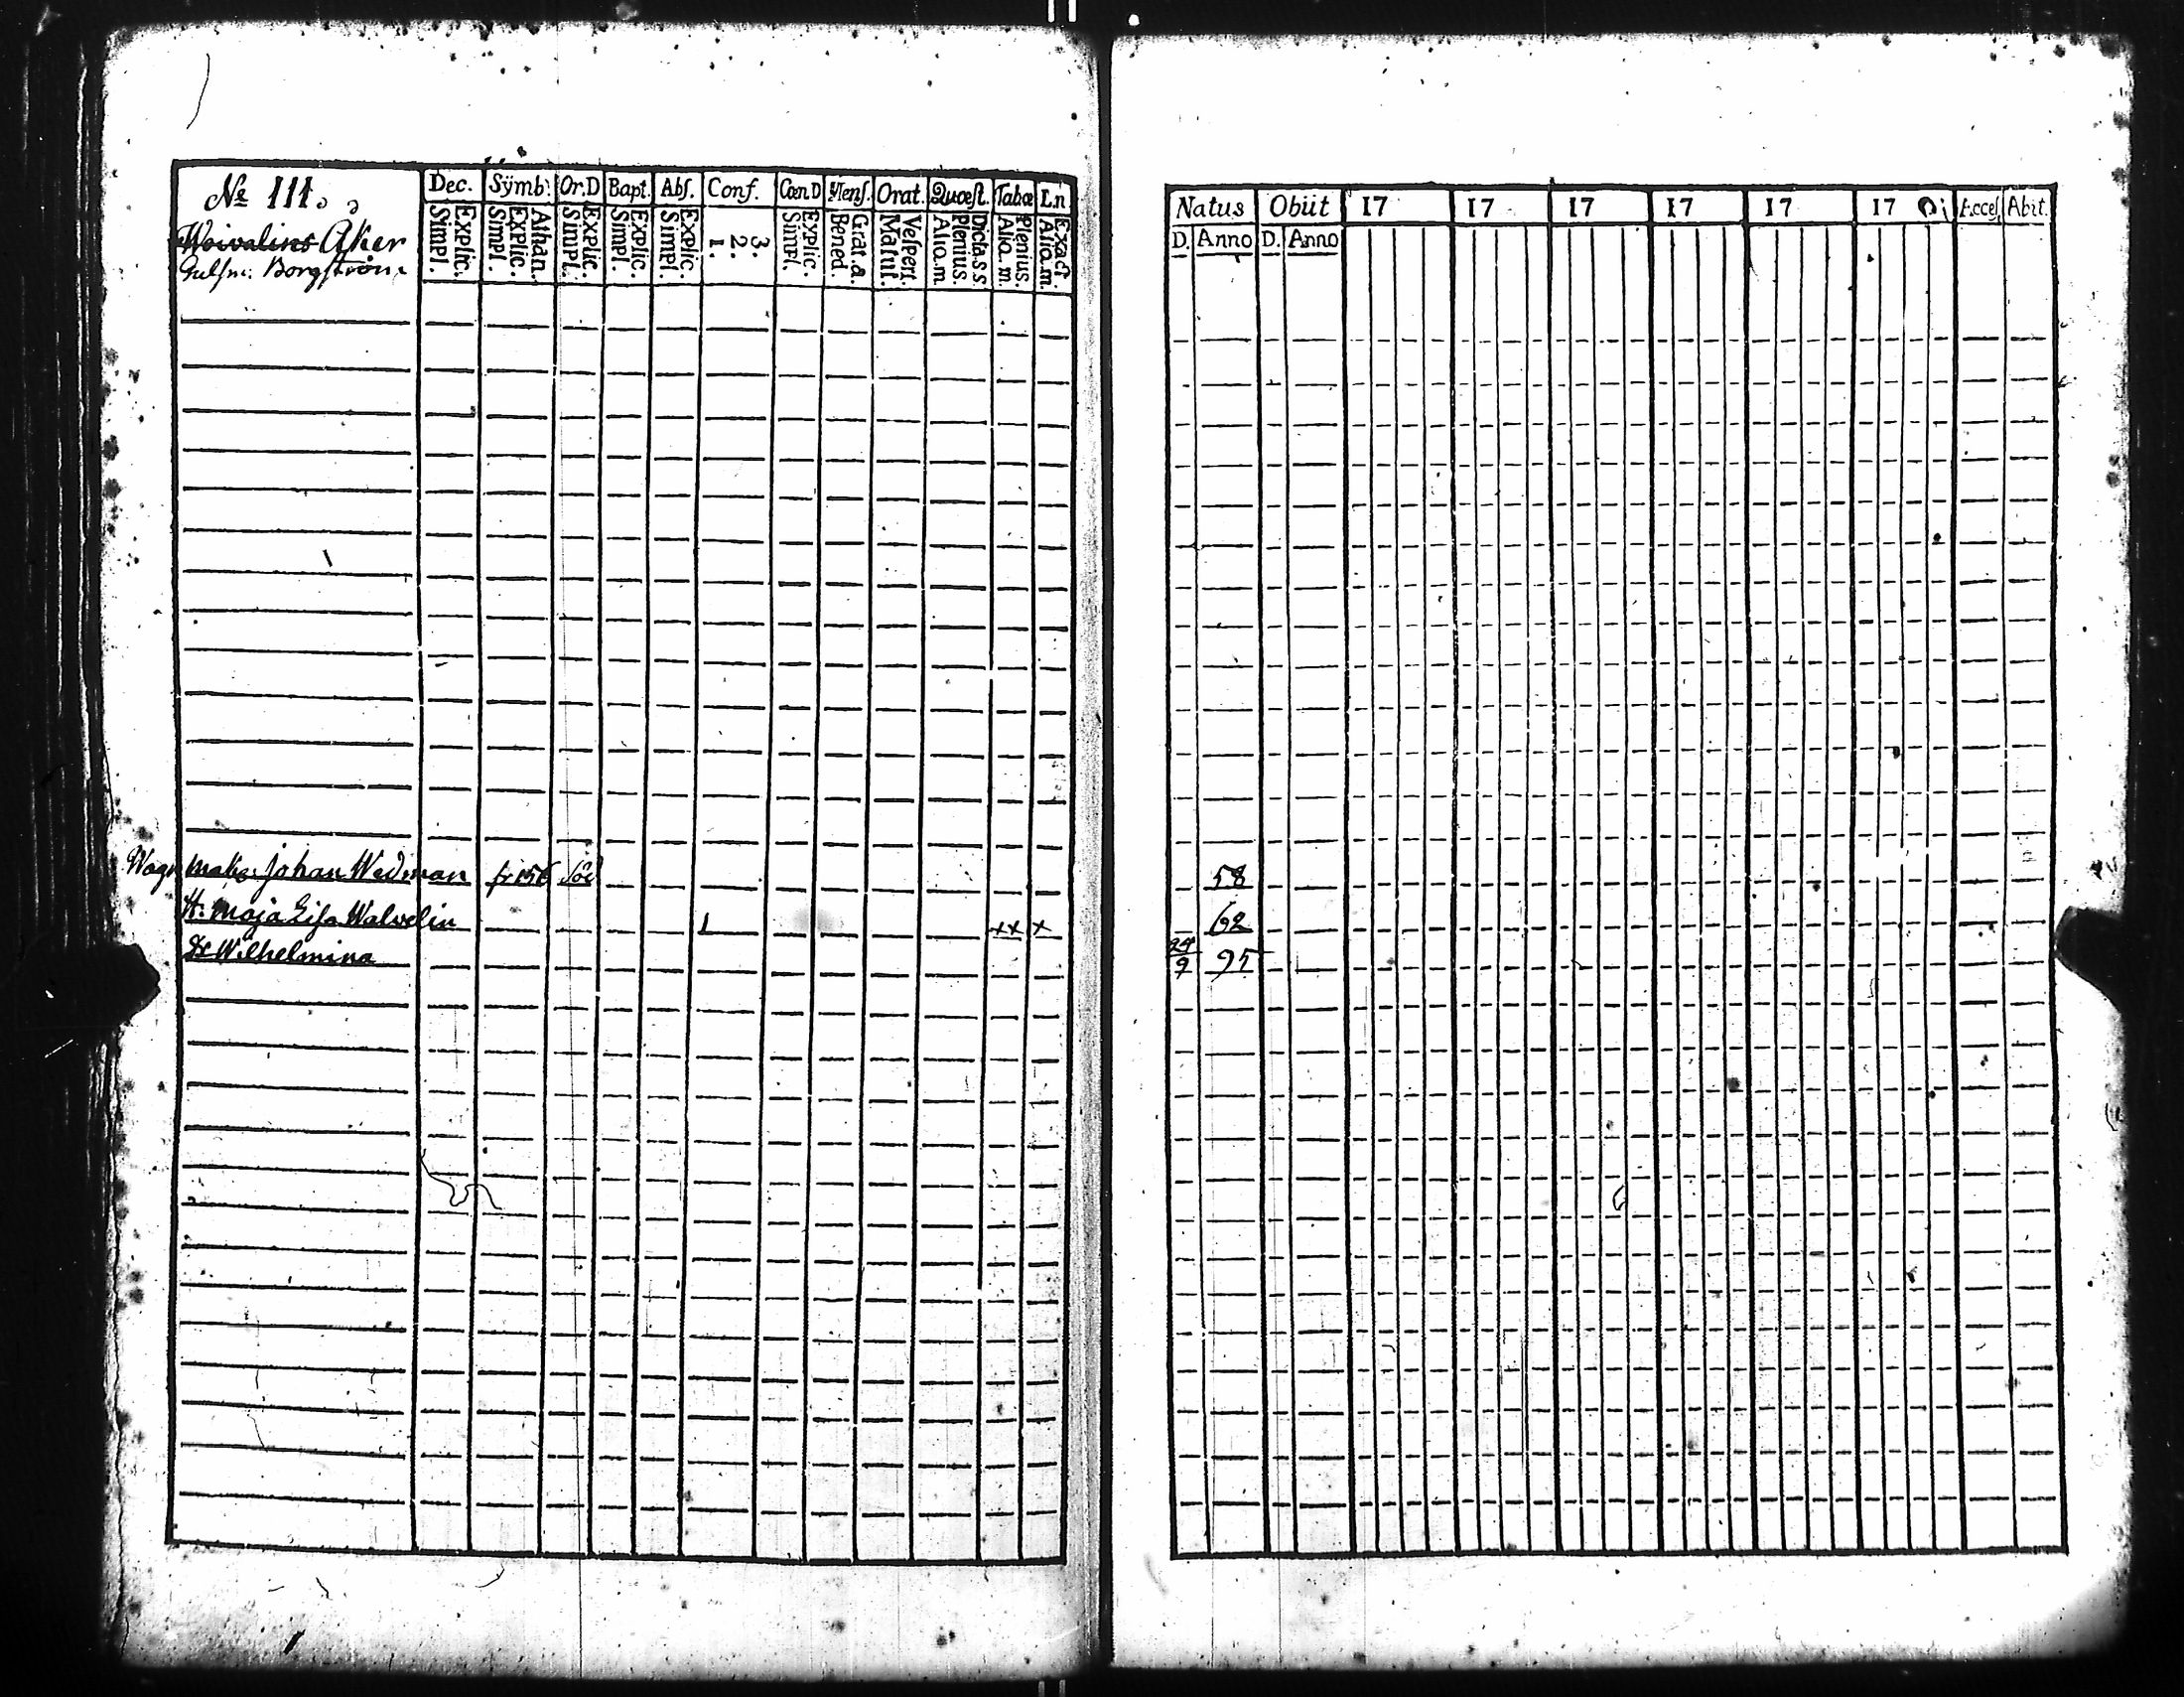 № 111.
Woivalins Åker
Gulsm: Borgström
Dec. Sÿmb: Or.D Bapt. Abſ. Conf. Cœn.D Menſ. Orat. Quœſt. Tabœ L.n
Explic. Simpl. Athan. Explic. Simpl. Explic. Simpl. Explic. Simpl. Explic. Simpl. 3. 2. 1. Explic. Simpl. Grat.a. Bened. Veſpert. Matut. Dicta.s.s. Plenius. Alio.m Plenius. Alio.m. Exact. Alio.m.
Natus Obiit 17 17 17 17 17 17 Acceſ Abit.
D. Anno D. Anno
Wagnmak: Johan Wedman fr 156 58
H. Maja Lisa Walvelin 1 xx x 62
Dr Wilhelmina 24/9 95